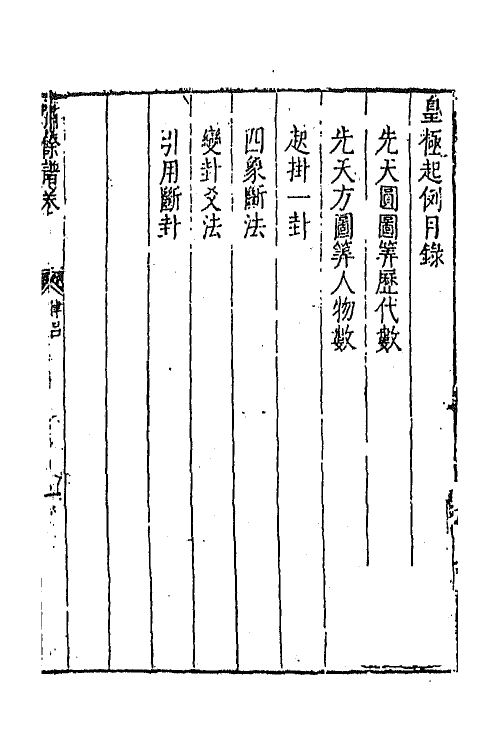 皇極起例目錄
先天圓圖筭歷代數
先天方圖筭人物數
起掛一卦
四象斷法
變卦爻法
引用斷卦
餘譜卷
律呂